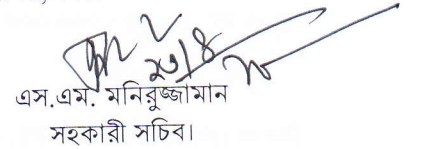 এস.এম. মনিরুজ্জামান
সহকারী সচিব।